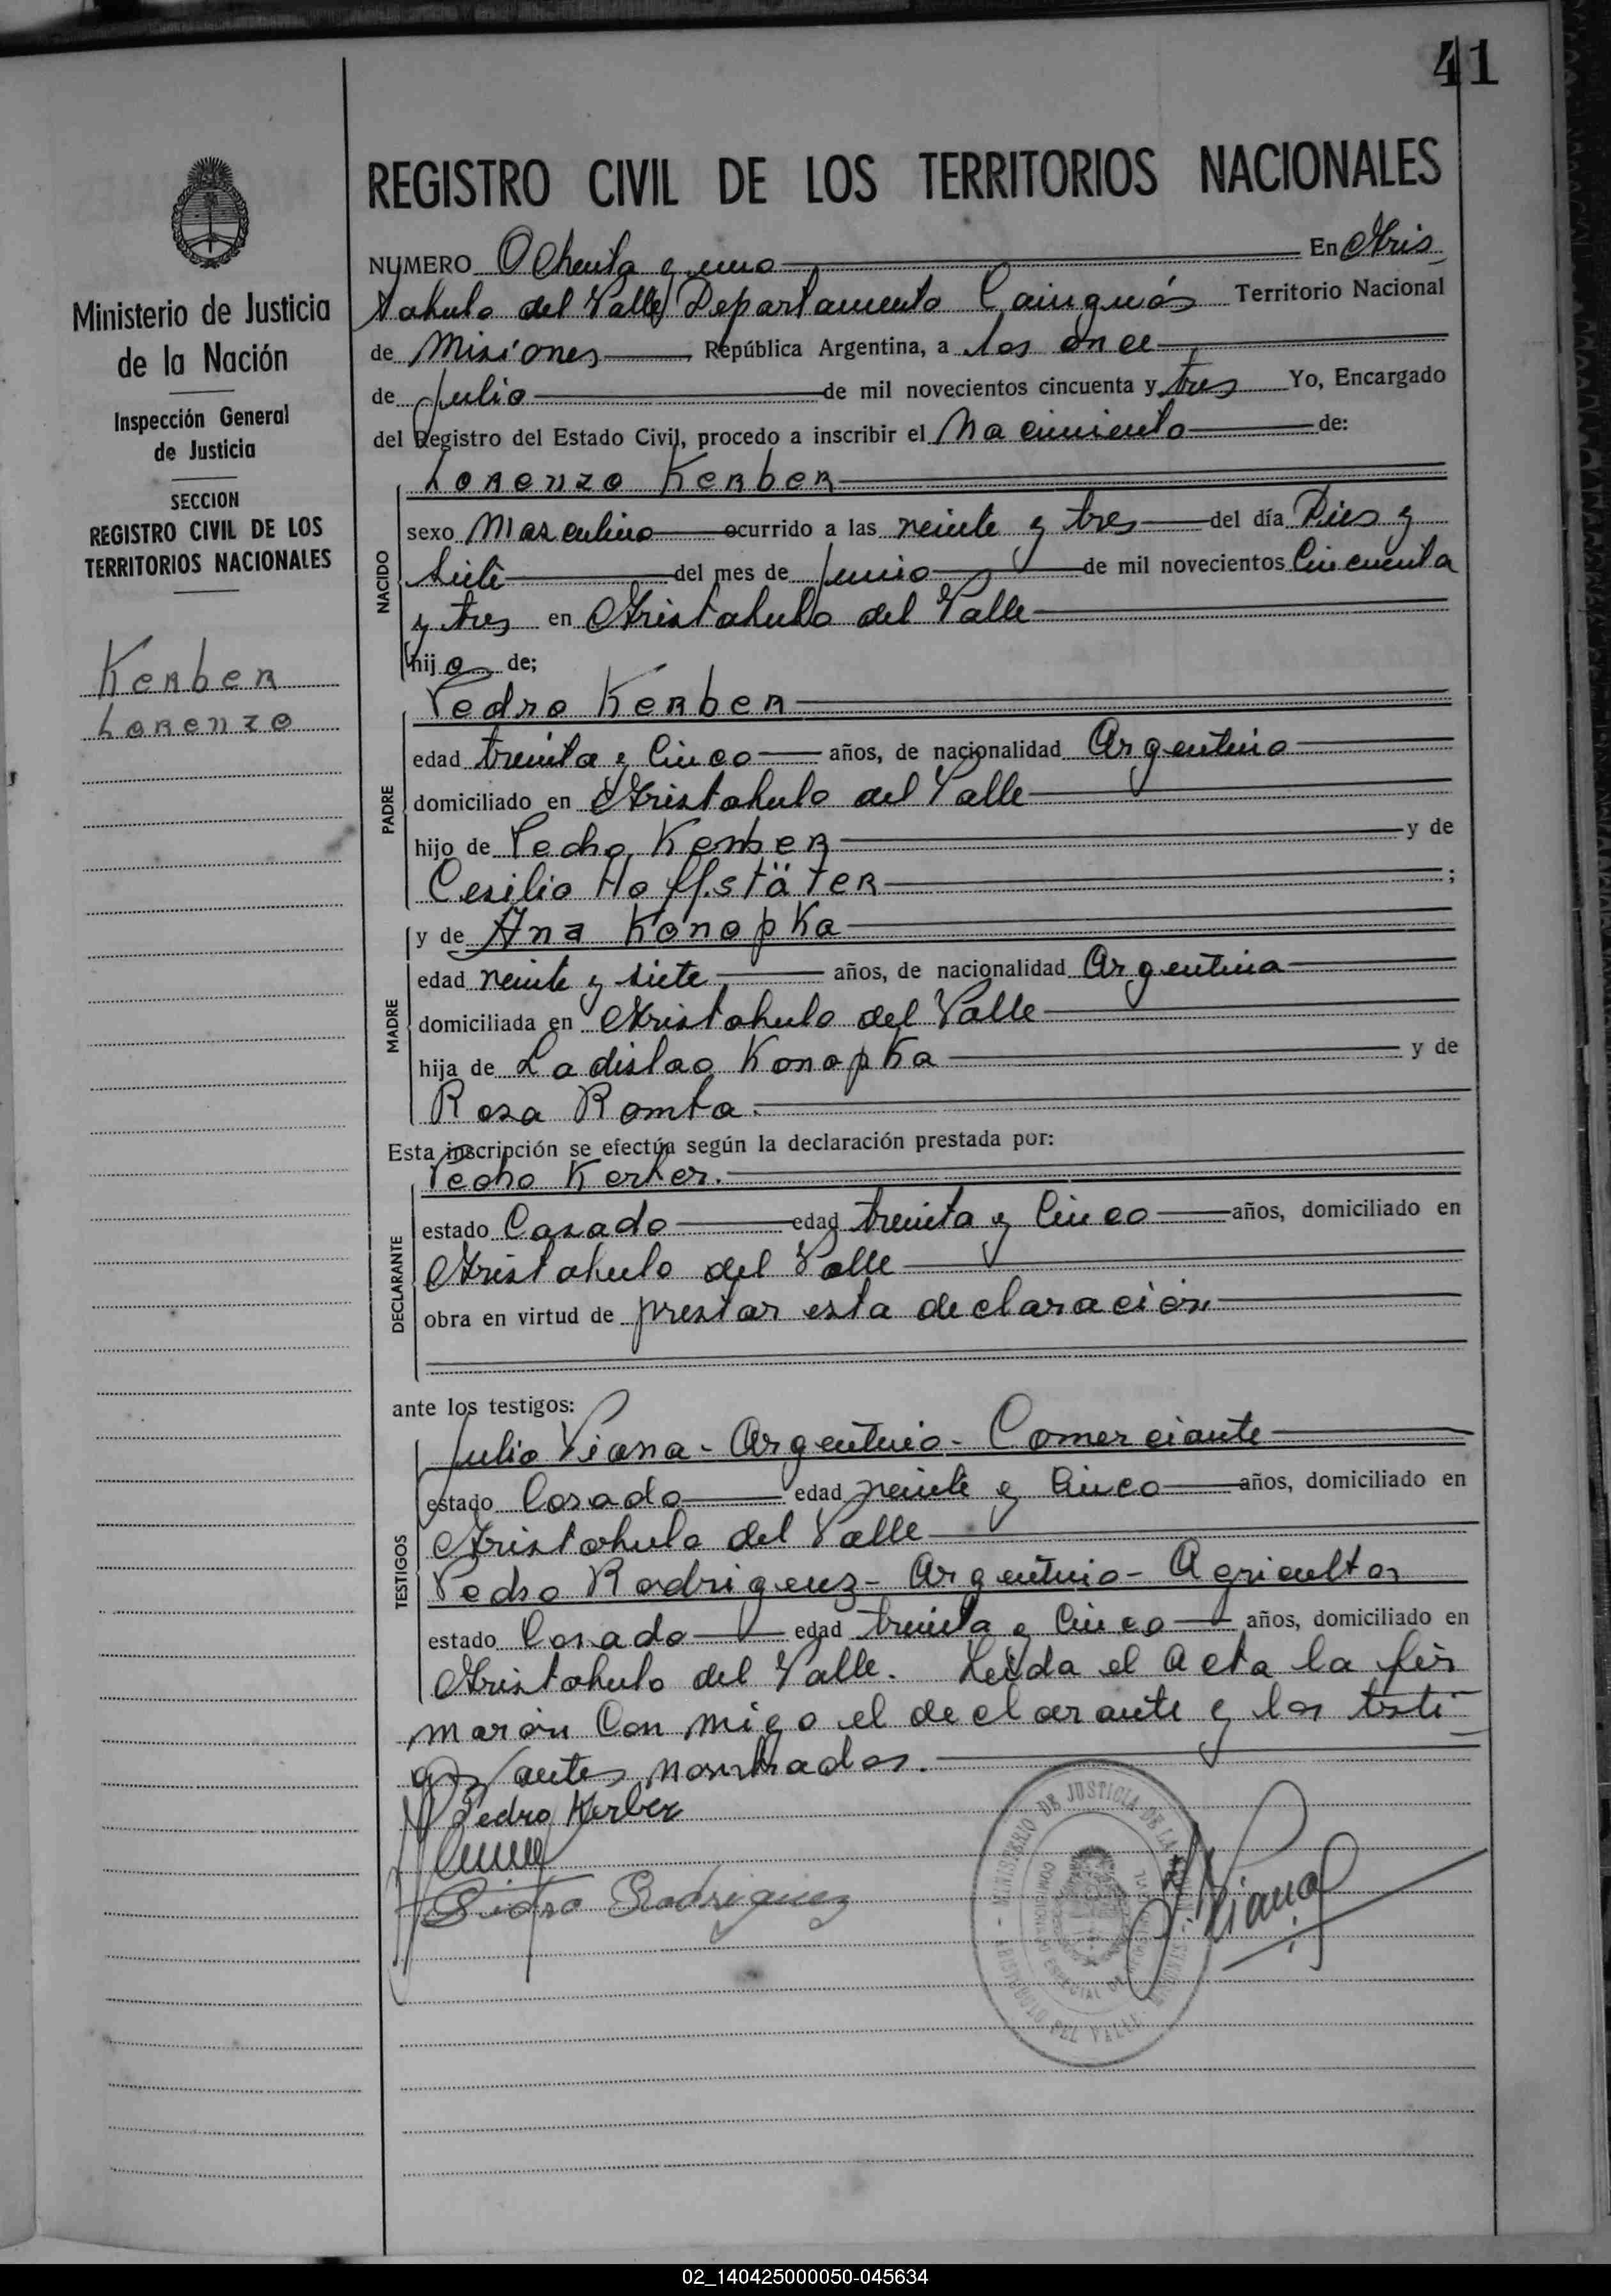 41
REGISTRO CIVIL DE LOS TERRITORIOS NACIONALES
Ministerio de Justicia
de la Nación
Inspección General
de Justicia
SECCION
REGISTRO CIVIL DE LOS
TERRITORIOS NACIONALES
Kerber
Lorenzo
NUMERO Ochenta y uno En Aris
tobulo del Valle Departamento Cainguás Territorio Nacional
de Misiones República Argentina, a los once
de julio de mil novecientos cincuenta y tres Yo, Encargado
del Registro del Estado Civil, procedo a inscribir el Nacimiento de:
NACIDO
Lorenzo Kerber
sexo Masculino ocurrido a las veinte y tres del día Dies y
siete del mes de junio de mil novecientos Cincuenta
y tres en Aristobulo del Valle
hijo de;
PADRE
Pedro Kerber
edad treinta y Cinco años, de nacionalidad Argentino
domiciliado en Aristobulo del Valle
hijo de Pedro Kerber y de
Cesilia Hoffstäter ;
MADRE
y de Ana Konopka
edad veinte y siete años, de nacionalidad Argentina
domiciliada en Aristobulo del Valle
hija de Ladislao Konopka y de
Rosa Romta.
Esta inscripción se efectúa según la declaración prestada por:
DECLARANTE
Pedro Kerber.
estado Casado edad treinta y Cinco años, domiciliado en
Aristobulo del Valle
obra en virtud de prestar esta declaración
ante los testigos:
TESTIGOS
Julio Viana - Argentino - Comerciante
estado Casado edad veinte y Cinco años, domiciliado en
Aristobulo del Valle
Pedro Rodriguez - Argentino - Agricultor
estado Casado edad treinta y Cinco años, domiciliado en
Aristobulo del Valle. Leida el Acta la fir
marón Con migo el declarante y los testi
gos antes nombrados.
Pedro Kerber
Pedro Rodriguez
J. Viana
MINISTERIO DE JUSTICIA DE LA NACION
ARISTOBULO DEL VALLE - MISIONES
02_140425000050-045634